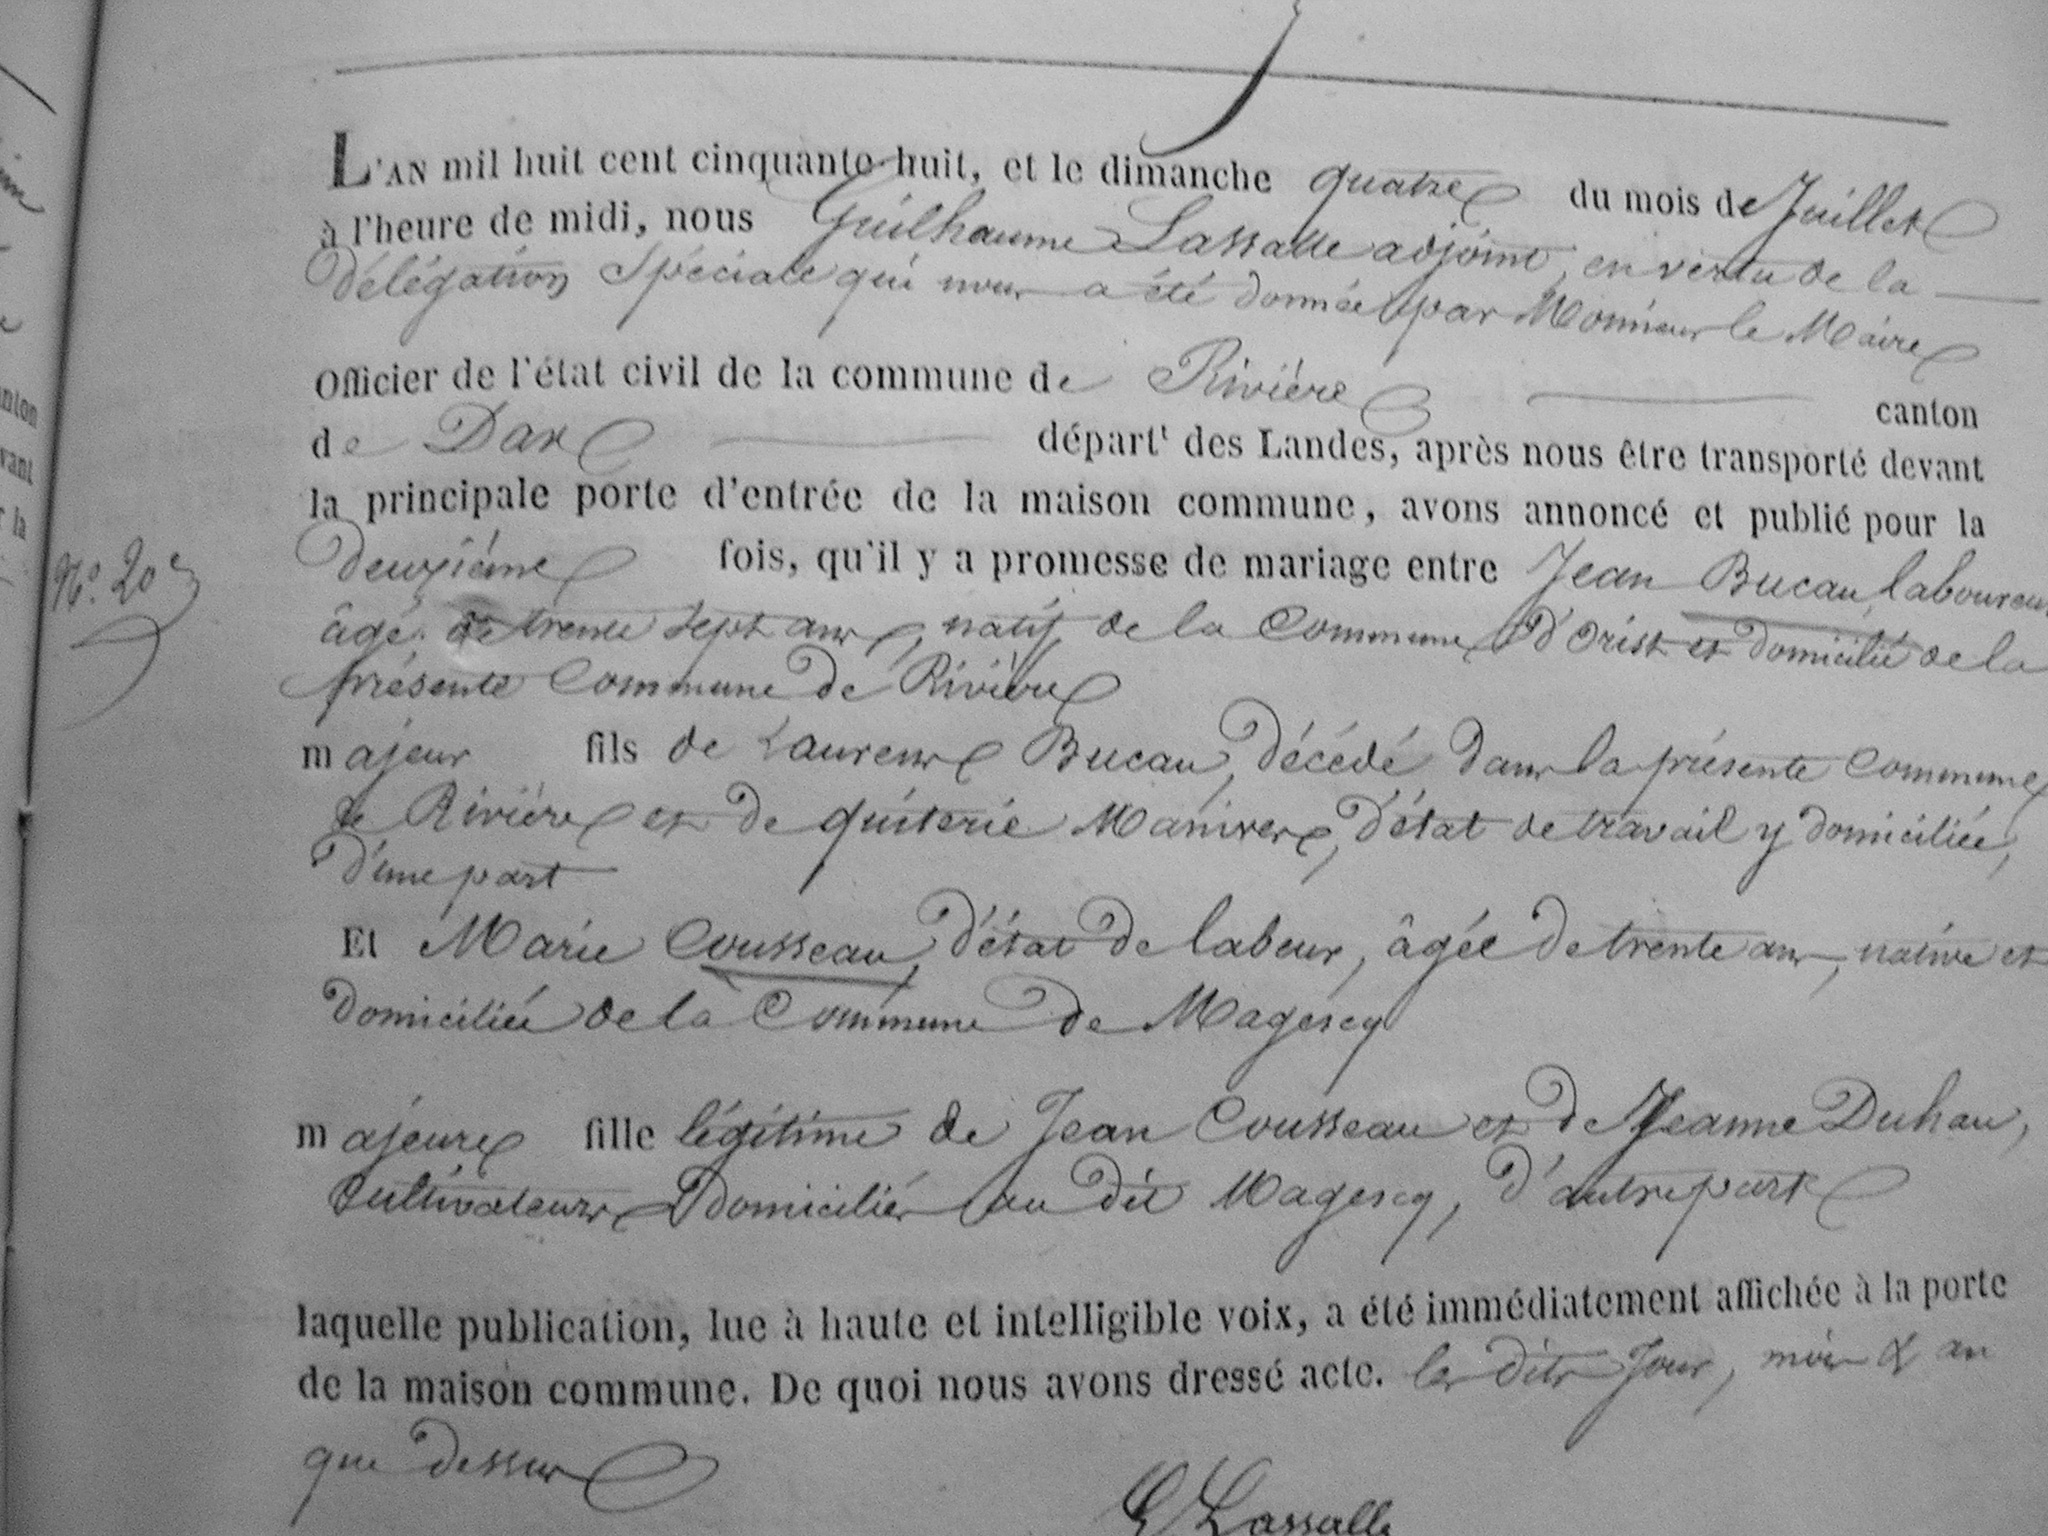 L'AN mil huit cent cinquante-huit, et le dimanche quatre du mois de Juillet
à l'heure de midi, nous Guilhaume Lassalle adjoint, en vertu de la
délégation Spéciale qui nous a été donnée par Monsieur le Maire
Officier de l'état civil de la commune de Rivière canton
de Dax départt des Landes, après nous être transporté devant
la principale porte d'entrée de la maison commune, avons annoncé et publié pour la
deuxième fois, qu'il y a promesse de mariage entre Jean Bucau, laboureur
N.o 20e
âgé de trente sept ans, natif de la Commune d'Orist et domicilié de la
présente Commune de Rivière
majeur fils de Laurens Bucau, décédé dans la présente commune
de Rivière et de quiterie d'état de travail y domiciliée,
d'une part
Et Marie Cousseau, d'état de labeur, âgée de trente ans, native et
domiciliée de la Commune de Magescq
majeure fille légitime de Jean Cousseau et de Jeanne Duhau,
Cultivateurs domiciliés au dit Magescq, d'autre part
laquelle publication, lue à haute et intelligible voix, a été immédiatement affichée à la porte
de la maison commune. De quoi nous avons dressé acte. les dits Jour, mois & an
que dessus
G Lassalle